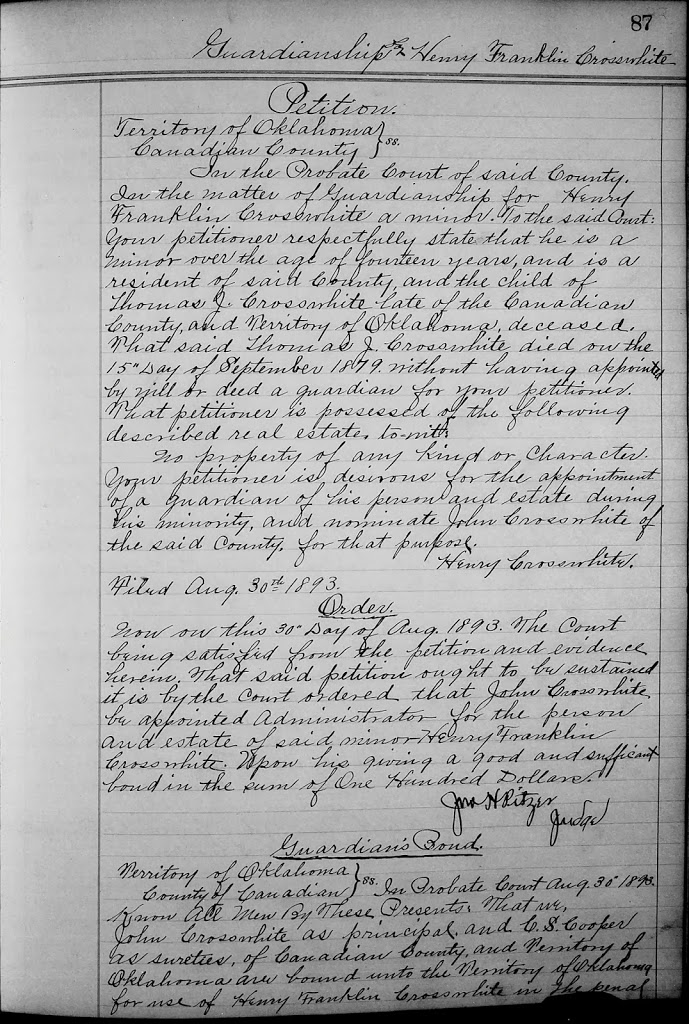 87
Guardianship of Henry Franklin Crosswhite
Petition.
Territory of Oklahoma } ss.
Canadian County
In the Probate Court of said County.
In the matter of Guardianship for Henry
Franklin Crosswhite a minor. To the said Court:
Your petitioner respectfully state that he is a
minor over the age of fourteen years, and is a
resident of said County, and the child of
Thomas J. Crosswhite late of the Canadian
County, and Territory of Oklahoma, deceased.
That said Thomas J. Crosswhite died on the
15" Day of September 1879. without having appointed
by will or deed a guardian for your petitioner.
That petitioner is possessed of the following
described real estate, to-wit:
No property of any kind or character.
Your petitioner is disirous for the appointment
of a guardian of his person and estate during
his minority, and nominate John Crosswhite of
the said County, for that purpose.
Henry Crosswhite.
Filed Aug. 30th 1893.
Order.
Now on this 30" Day of Aug. 1893. The Court
being satisfied from the petition and evidence
herein. That said petition ought to be sustained
it is by the Court ordered that John Crosswhite
be appointed Administrator for the person
and estate of said minor Henry Franklin
Crosswhite. Upon his giving a good and sufficient
bond in the sum of One Hundred Dollars.
Jno H Pitzer
Judge
Guardian's Bond.
Territory of Oklahoma } ss. In Probate Court Aug. 30" 1893.
County of Canadian
Know All Men By These Presents, That we,
John Crosswhite as principal, and C. S. Cooper
as sureties, of Canadian County, and Territory of
Oklahoma are bound unto the Territory of Oklahoma
for use of Henry Franklin Crosswhite in the penal